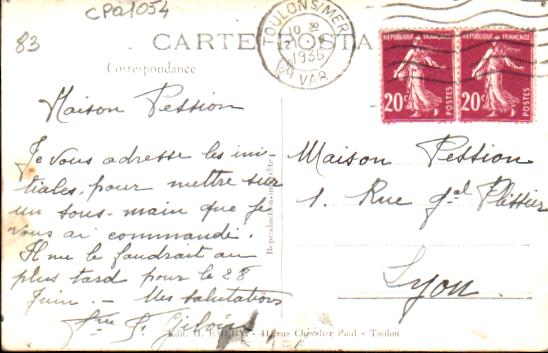 CPA1054
83
CARTE POSTA
Correspondance
TOULON S/MER
10 30
12
1936
VAR
REPUBLIQUE FRANCAISE
20c
POSTES
REPUBLIQUE FRANCAISE
20c
POSTES
Maison Pession
Je vous adresse les ini-
tiales pour mettre sur
un sous-main que je
vous ai commandé.
Il me le faudrait au
plus tard pour le 28
Juin. - Mes salutations
Reproduction interdite
Maison Pession
1. Rue gal Plissier
Lyon.
Edit. H. - 41, rue Chevalier Paul - Toulon